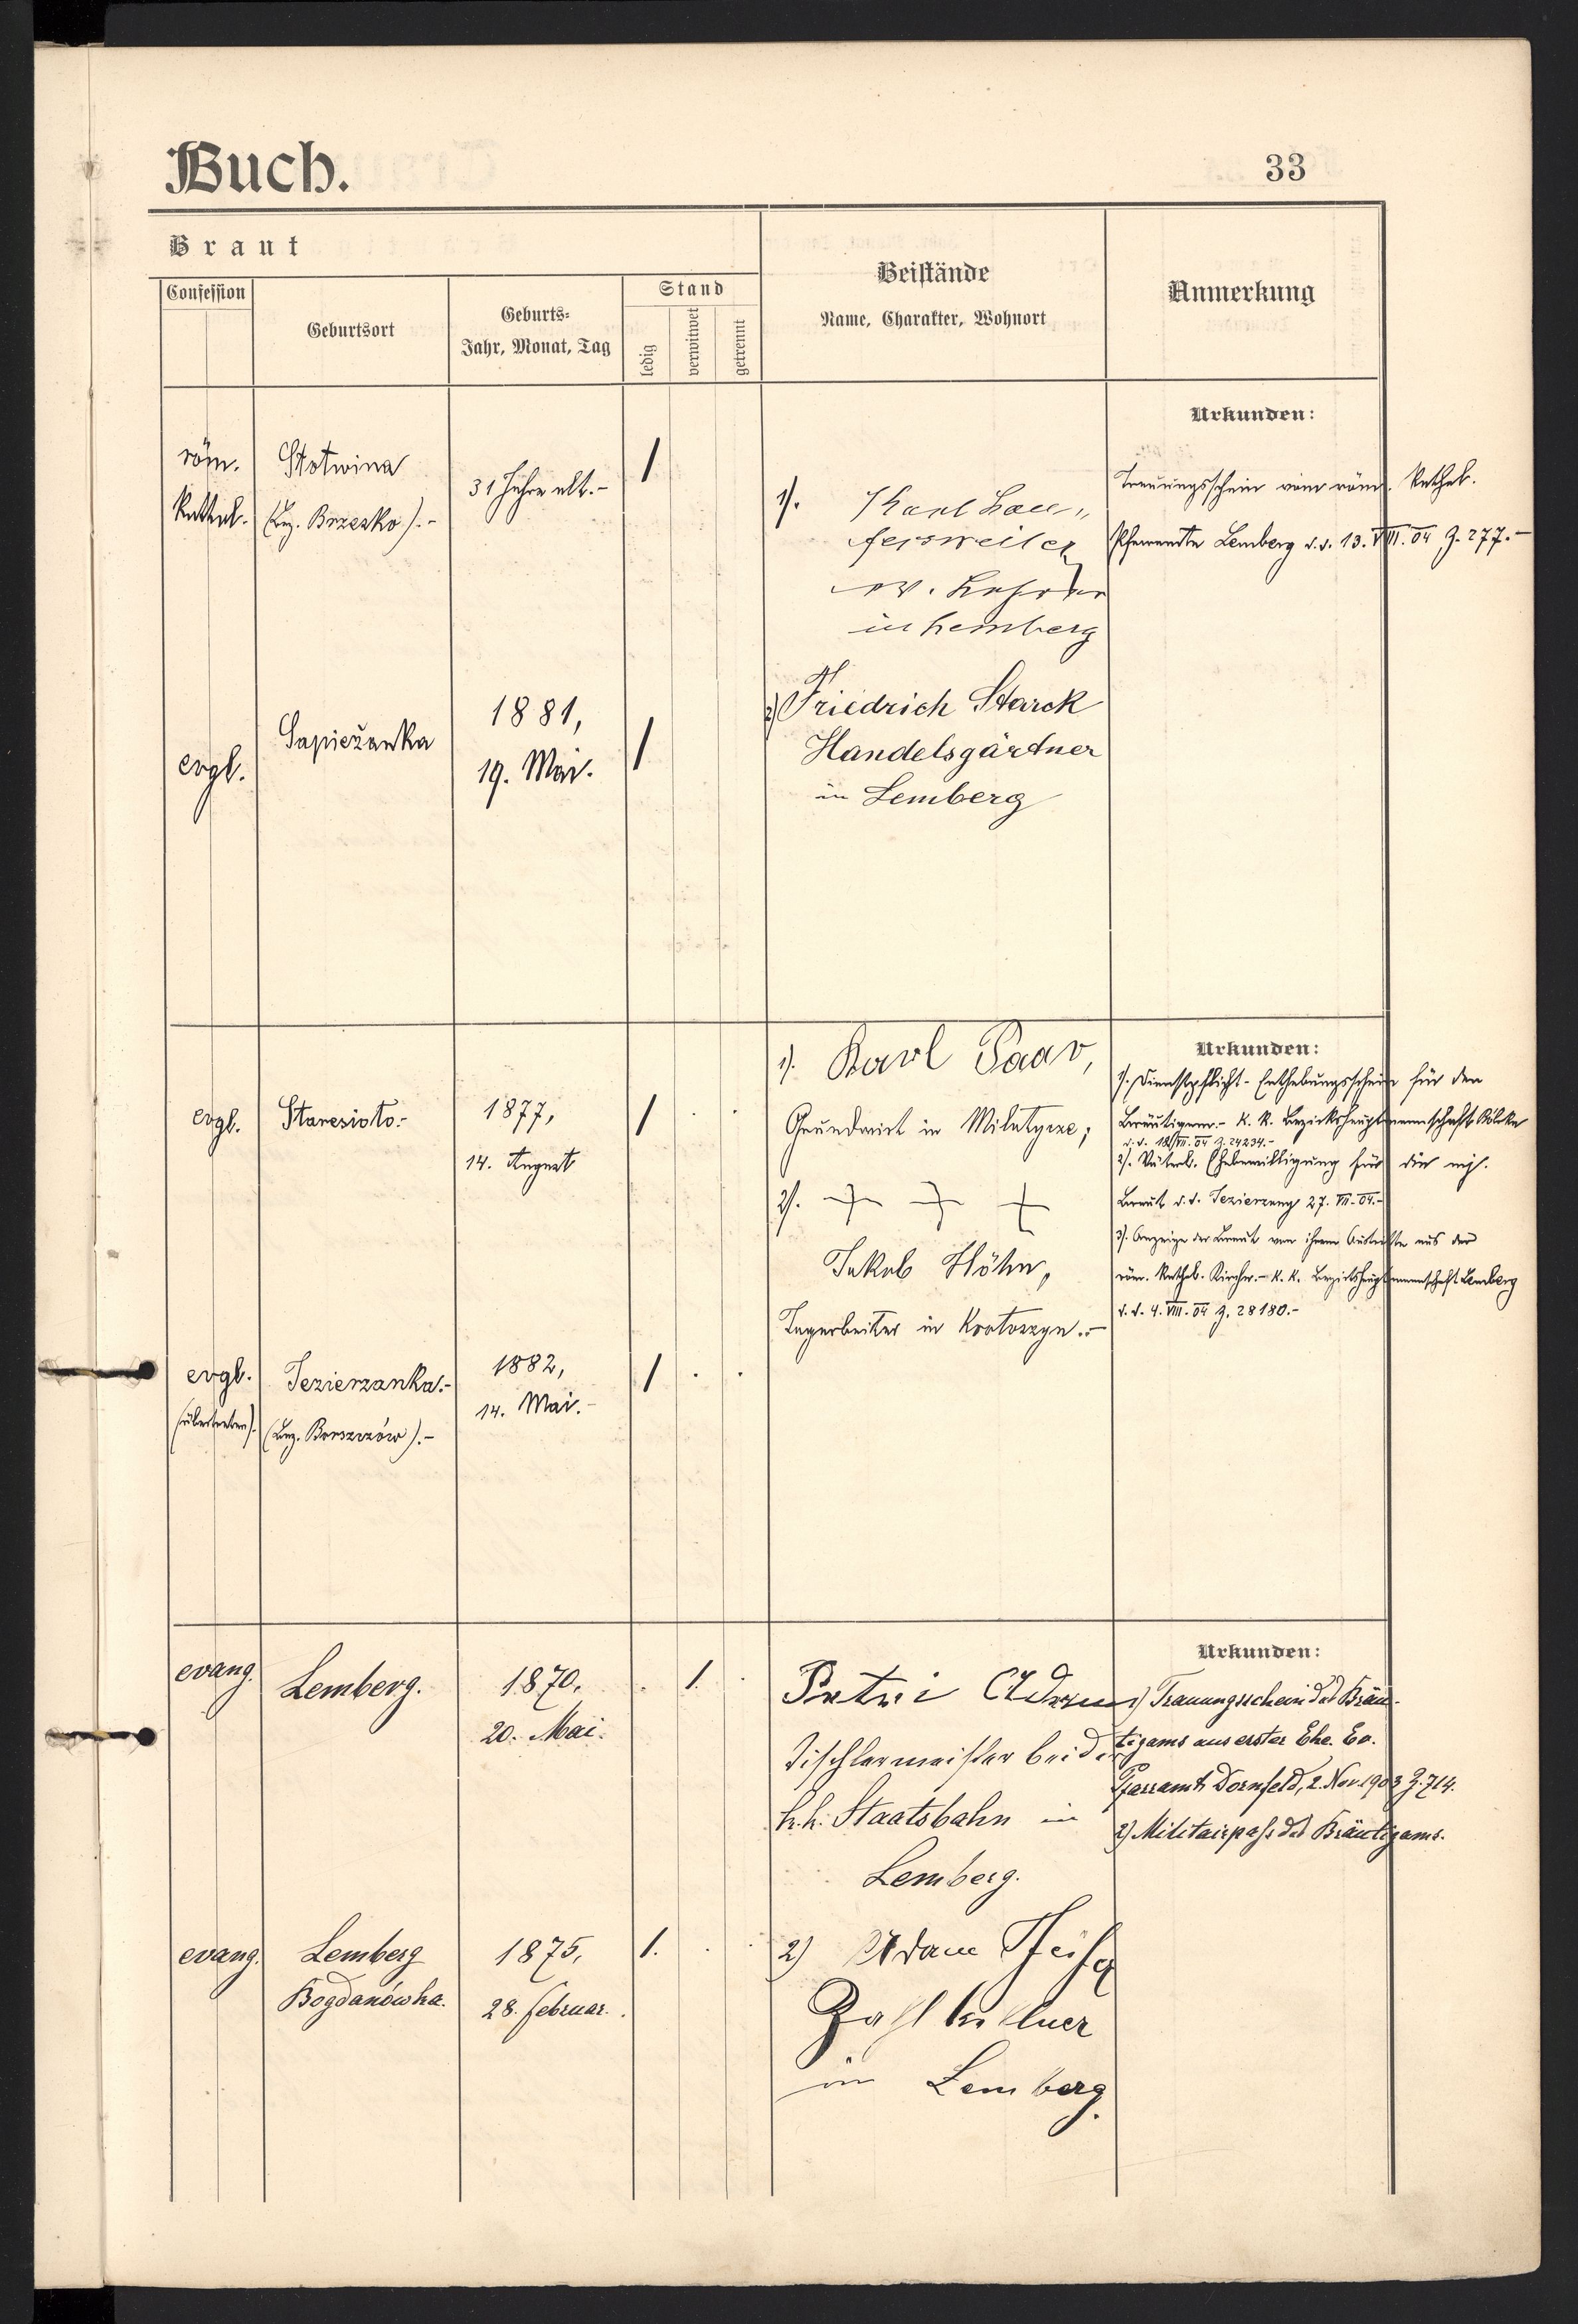 Buch.
33
Braut
Confession
Geburtsort
Geburts-
Jahr, Monat, Tag
Stand
ledig
verwitwet
getrennt
Beistände
Name, Charakter, Wohnort
Anmerkung
Urkunden:
röm.
kathol.
Słotwina
(Bez. Brzesko).-
31 Jahre alt.-
1).
Karl Lau„
fersweiler
ev. Lehrer
in Lemberg
Trauungsschein vom röm. kathol.
Pfarramte Lemberg d.d. 13. VIII. 04 Z. 277.-
evgl.
Sapieżanka
1881,
19. Mai.
2) Friedrich Starck
Handelsgärtner
in Lemberg
evgl.
Staresioło.-
1877,
14. August
1). Karl Paar,
Grundwirt in Milatycze;
2). + + +
Jakob Höhn,
Tagarbeiter in Krotoszyn.-
Urkunden:
1). Dienstpflicht-Enthebungsschein für den
Bräutigam.- K. K. Bezirkshauptmannschaft Bóbrka
d. d. 18/VII. 04 Z. 24234.-
2). Väterl. Ehebewilligung für die mj.
Braut d. d. Jezierzany 27. VII. 04.-
3). Anzeige der Braut von ihrem Austritte aus der
röm. kathol. Kirche.- K. K. Bezirkshauptmannschaft Lemberg
d. d. 4. VIII. 04 Z. 28180.-
evgl.
(übertreten).
Jezierzanka.-
(Bez. Borszczów).-
1882,
14. Mai.-
evang.
Lemberg.
1870.
20. Mai.
1.
Petri Adam
Tischlermeister bei der
k.k. Staatsbahn in
Lemberg.
Urkunden:
1) Trauungsschein des Bräu-
tigams aus erster Ehe. Ev.
Pfarramt Dornfeld, 2. Nov. 1903 Z. 714.
2) Militairpass des Bräutigams.
evang.
Lemberg
Bogdanówka.
1875,
28. Februar.
1.
2) Adam
Zahlkellner
in Lemberg.